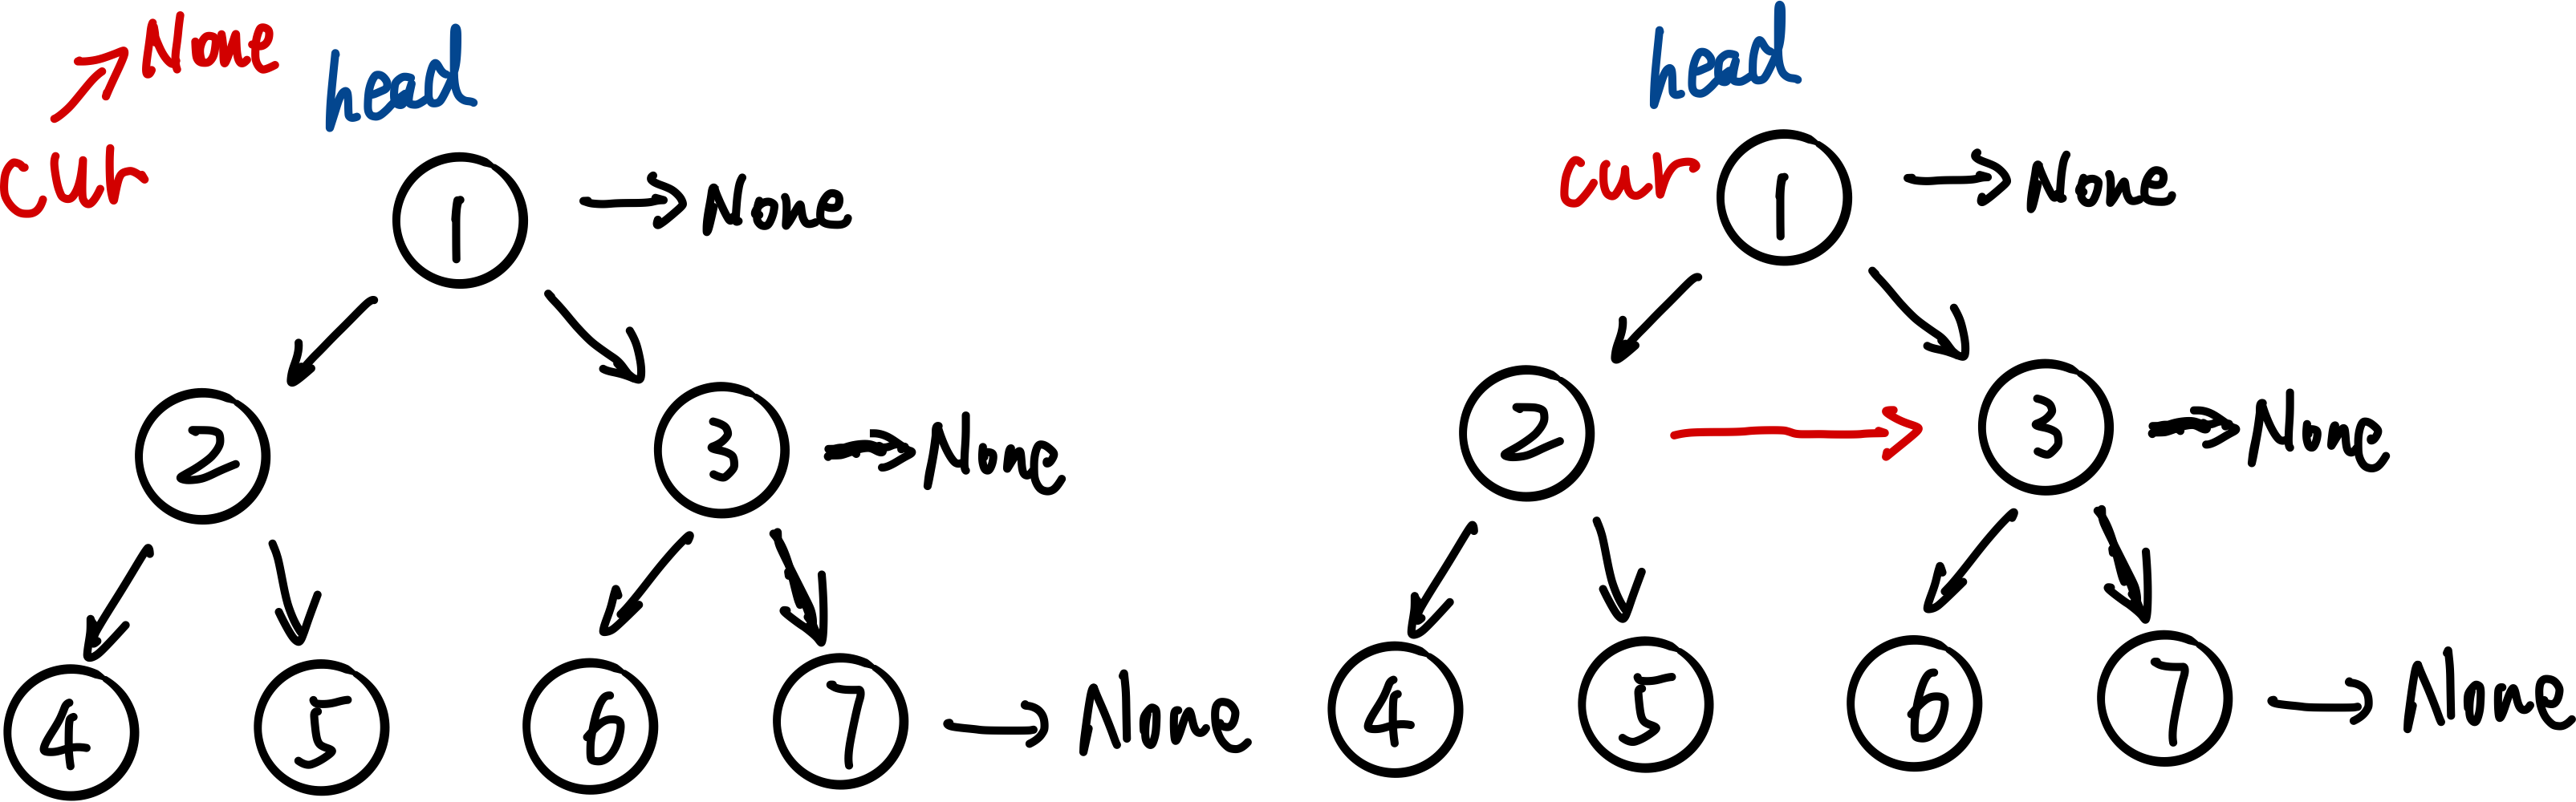 None
head
cur
1
None
2
3
None
4
5
6
7
None
head
cur
1
None
2
3
None
4
5
6
7
None